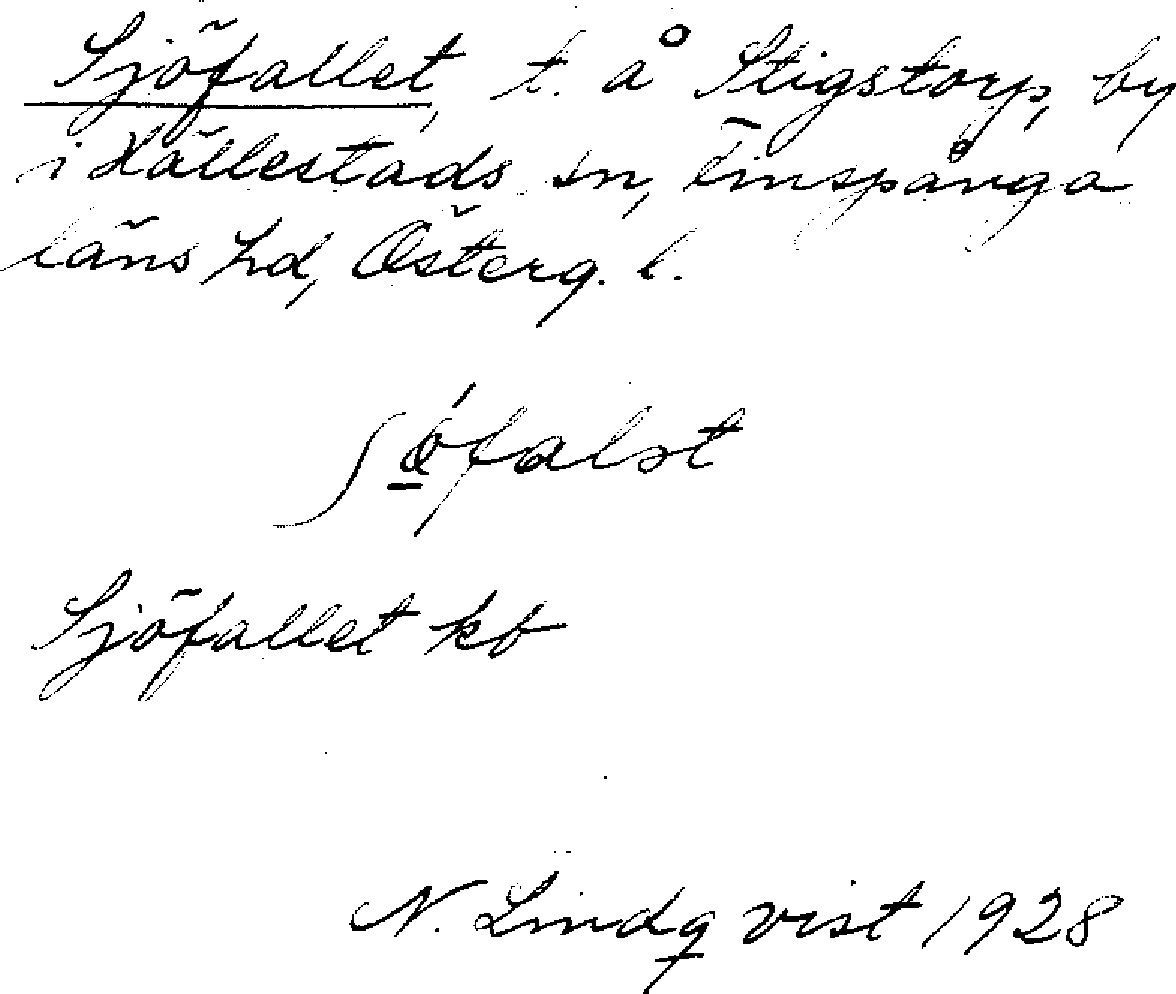 Sjöfallet, t. å Stigstorp, by
i Hällestads sn, Finspånga
läns hd, Österg. l.
ʃǿfalst
Sjöfallet kb
N. Lindqvist 1928